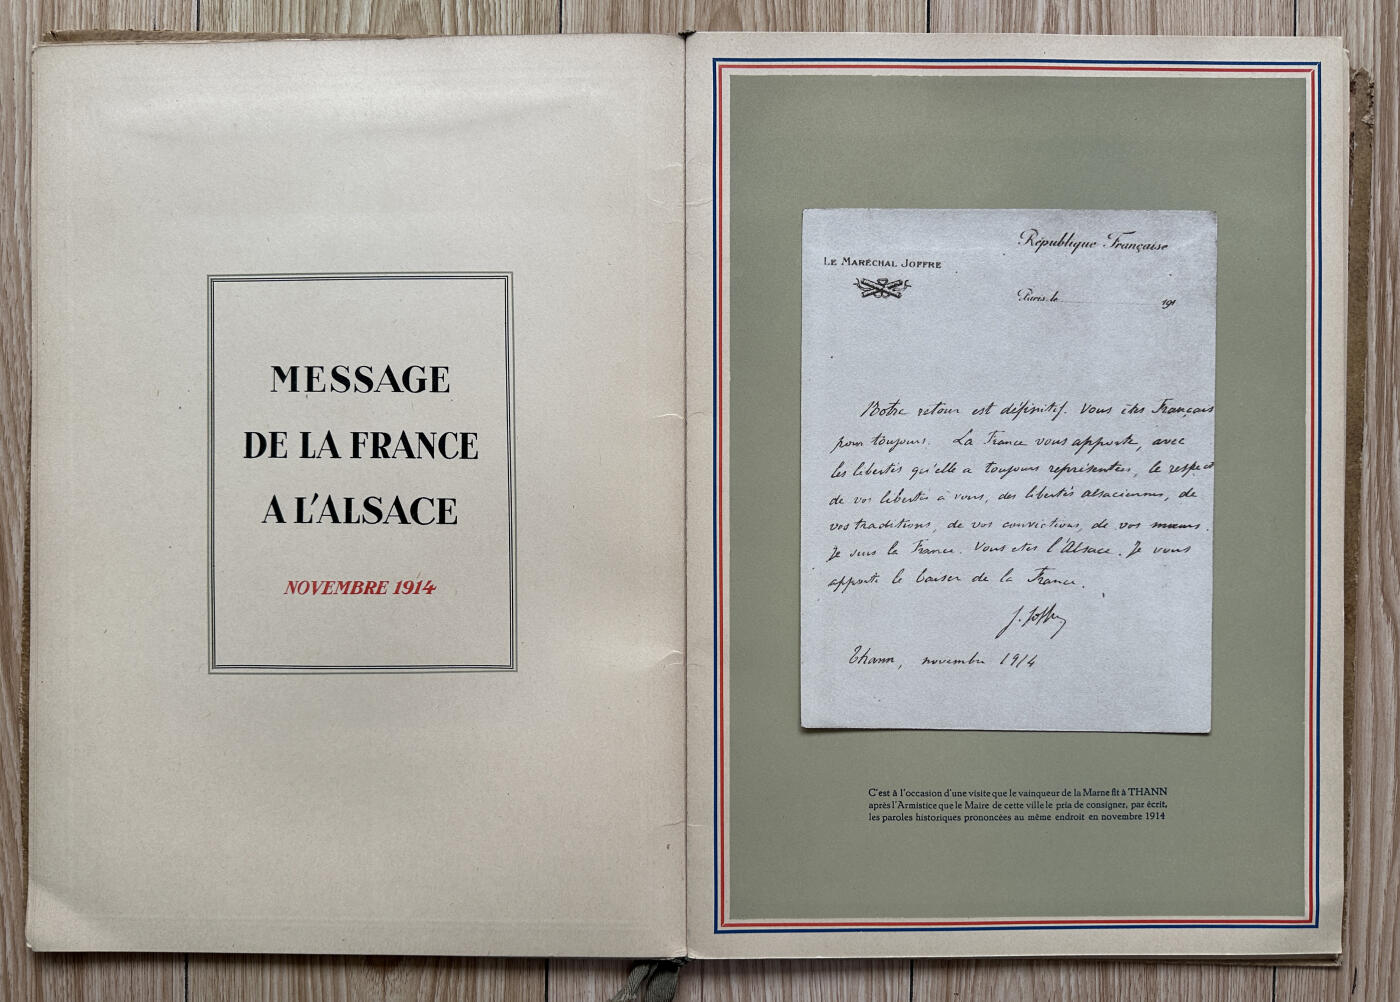 MESSAGE
DE LA FRANCE
A L'ALSACE
NOVEMBRE 1914
République Française
LE MARÉCHAL JOFFRE
Paris, le 191
Notre retour est définitif. Vous êtes Français
pour toujours. La France vous apporte, avec
les libertés qu'elle a toujours représentées, le respect
de vos libertés à vous, des libertés alsaciennes, de
vos traditions, de vos convictions, de vos mœurs.
Je suis la France. Vous etes l'Alsace. Je vous
apporte le baiser de la France.
J. Joffre
Thann, novembre 1914
C'est à l'occasion d'une visite que le vainqueur de la Marne fit à THANN
après l'Armistice que le Maire de cette ville le pria de consigner, par écrit,
les paroles historiques prononcées au même endroit en novembre 1914